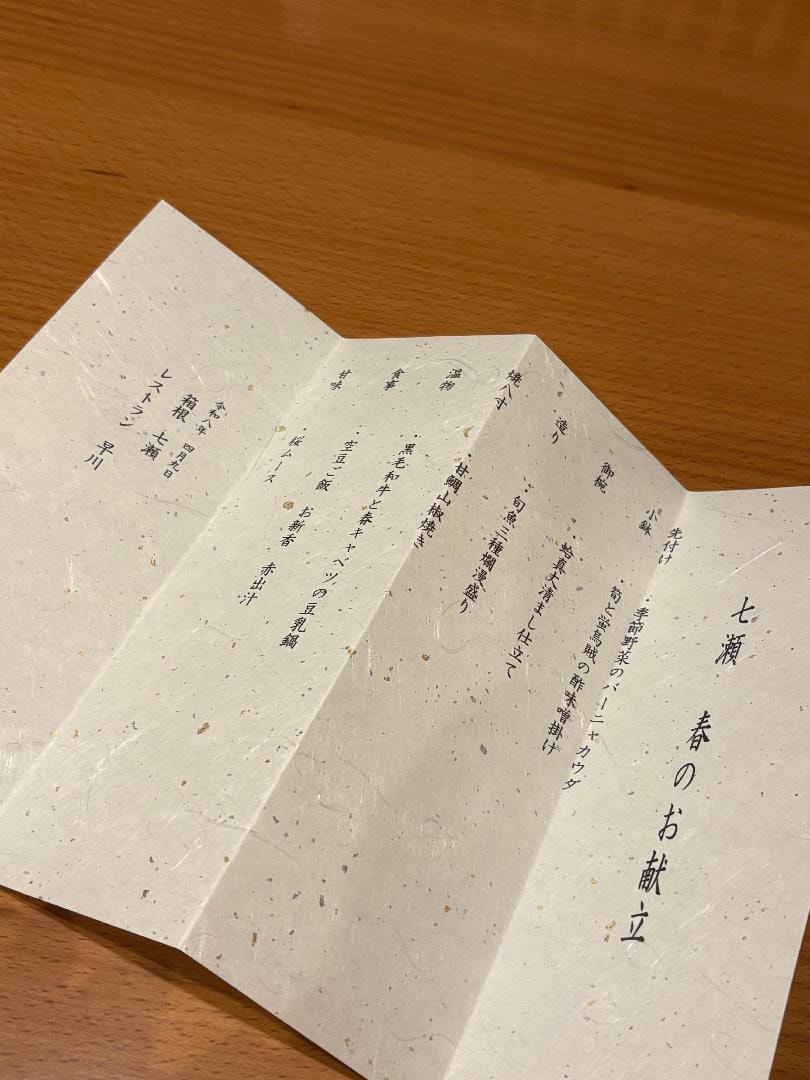 七瀬 春のお献立
先付け
・季節野菜のバーニャカウダ
小鉢
・筍と蛍烏賊の酢味噌掛け
御椀
・蛤真丈清まし仕立て
造り
・旬魚三種爛漫盛り
焼八寸
・甘鯛山椒焼き
温物
・黒毛和牛と春キャベツの豆乳鍋
食事
・空豆ご飯 お新香 赤出汁
甘味
・桜ムース
令和八年 四月九日
箱根 七瀬
レストラン 早川